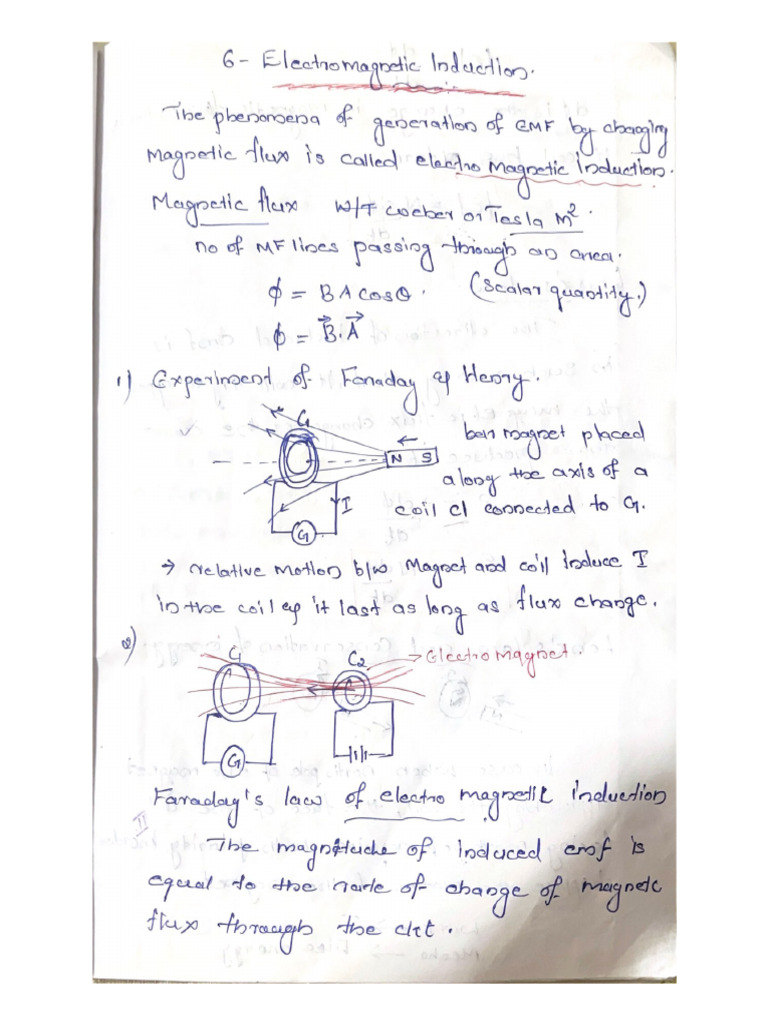 6- Electromagnetic Induction.
The phenomena of generation of EMF by changing
Magnetic flux is called electro magnetic induction.
Magnetic flux W/T weber or Tesla m².
no of MF lines passing through an area.
ϕ = BA cosθ. (Scalar quantity.)
ϕ = B⃗.A⃗
1) Experiment of Faraday & Henry.
C1
bar magnet placed
N S
along the axis of a
I
coil C1 connected to G.
G
→ relative motion b/w Magnet and coil induce I
in the coil & it last as long as flux change.
2)
C1 C2 → Electro Magnet.
G
Faraday's law of electro magnetic induction
II
The magnitude of induced emf is
equal to the rate of change of magnetic
flux through the ckt.